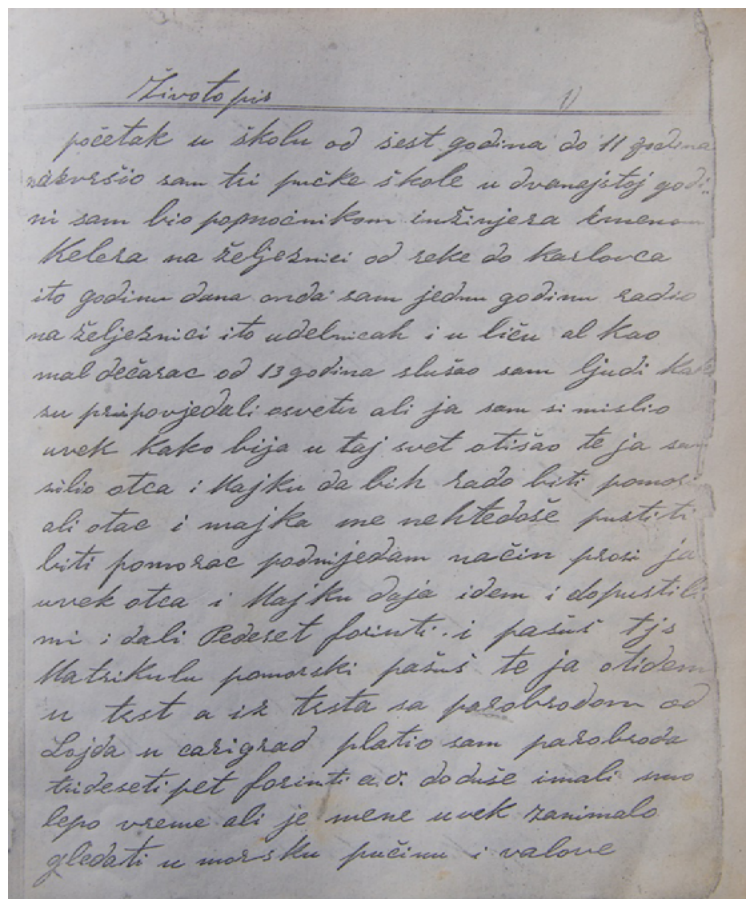 Životopis 1)
početak u školu od šest godina do 11 godina
nazvršio sam tri pučke škole u dvanajstoj godi-
ni sam bio popnoćnikom inžinjera imenom
Kelera na željeznici od reke do Karlovca
ito godinu dana onda sam jednu godinu radio
na željeznici ito udelnicah i u liču al kao
mal dečarac od 13 godina slušao sam ljudi kako
su pripovjedali osvetu ali ja sam si mislio
uvek kako bija u taj svet otišao te ja sam
silio otca i Majku da bih rado biti pomor
ali otac i majka me nehtedoše pustiti
biti pomorac podnijedam način prosi ja
uvek otca i Majku daja idem i dopustili
mi i dali Pedeset forinti i pašuš tjs
Matrikulu pomorski pašuš te ja otidem
u trst a iz trsta sa parobrodom od
Lojda u carigrad platio sam parobroda
trideseti pet forinti a.v. doduše imali smo
lepo vreme ali je mene uvek zanimalo
gledati u morsku pučinu i valove